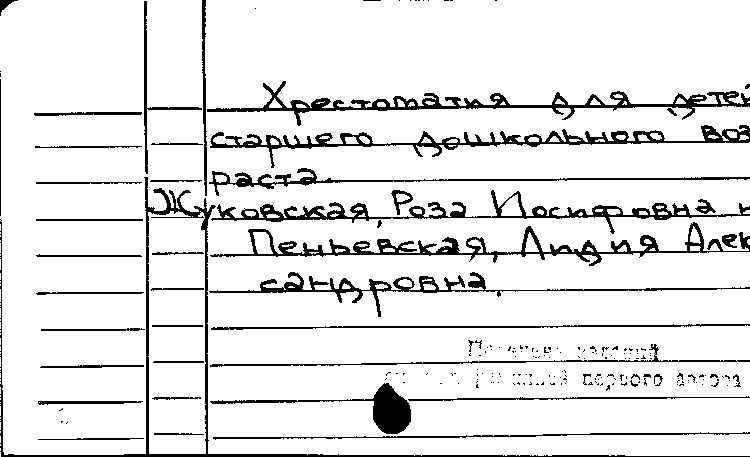 Хрестоматия для детей
старшего дошкольного воз
раста.
Жуковская, Роза Иосифовна и
Пеньевская, Лидия Алек
сандровна.
первого автора